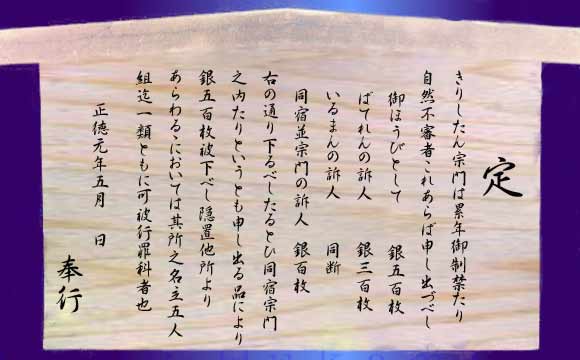 定
きりしたん宗門は累年御制禁たり
自然不審者これあらば申し出づべし
御ほうびとして
ばてれんの訴人　銀五百枚
いるまんの訴人　銀三百枚
同宿並宗門の訴人　同断
銀百枚
右の通り下るべしたるとひ同宿宗門
之内たりというとも申し出る品により
銀五百枚被下べし隠置他所より
あらわるゝにおいては其所之名主五人
組迄一類ともに可被行罪科者也
正徳元年五月　日
奉行